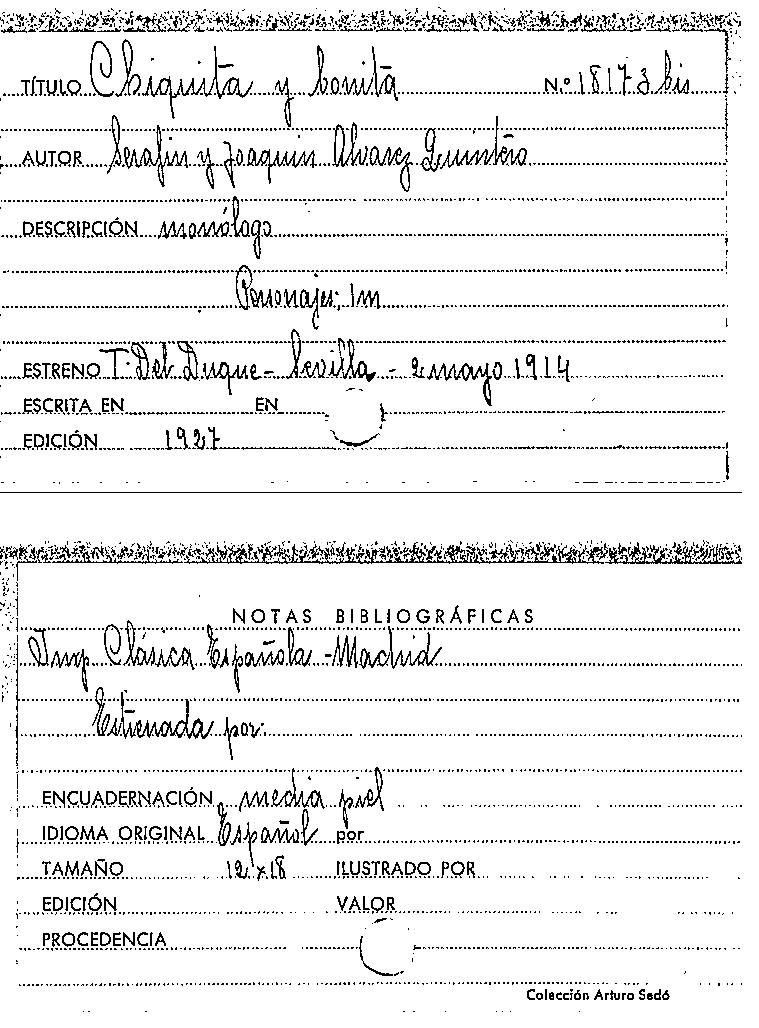 TÍTULO Chiquita y bonita N.º 18173 bis
AUTOR Serafin y Joaquin Alvarez Quintero
DESCRIPCIÓN monólogo
Personajes, 1m
ESTRENO T. Del Duque - Sevilla - 2 mayo 1914
ESCRITA EN EN
EDICIÓN 1927
NOTAS BIBLIOGRÁFICAS
Imp. Clásica Española - Madrid
Estrenada por:
ENCUADERNACIÓN media piel
IDIOMA ORIGINAL Español por
TAMAÑO 12 x 18 ILUSTRADO POR
EDICIÓN VALOR
PROCEDENCIA
Colección Arturo Sedó